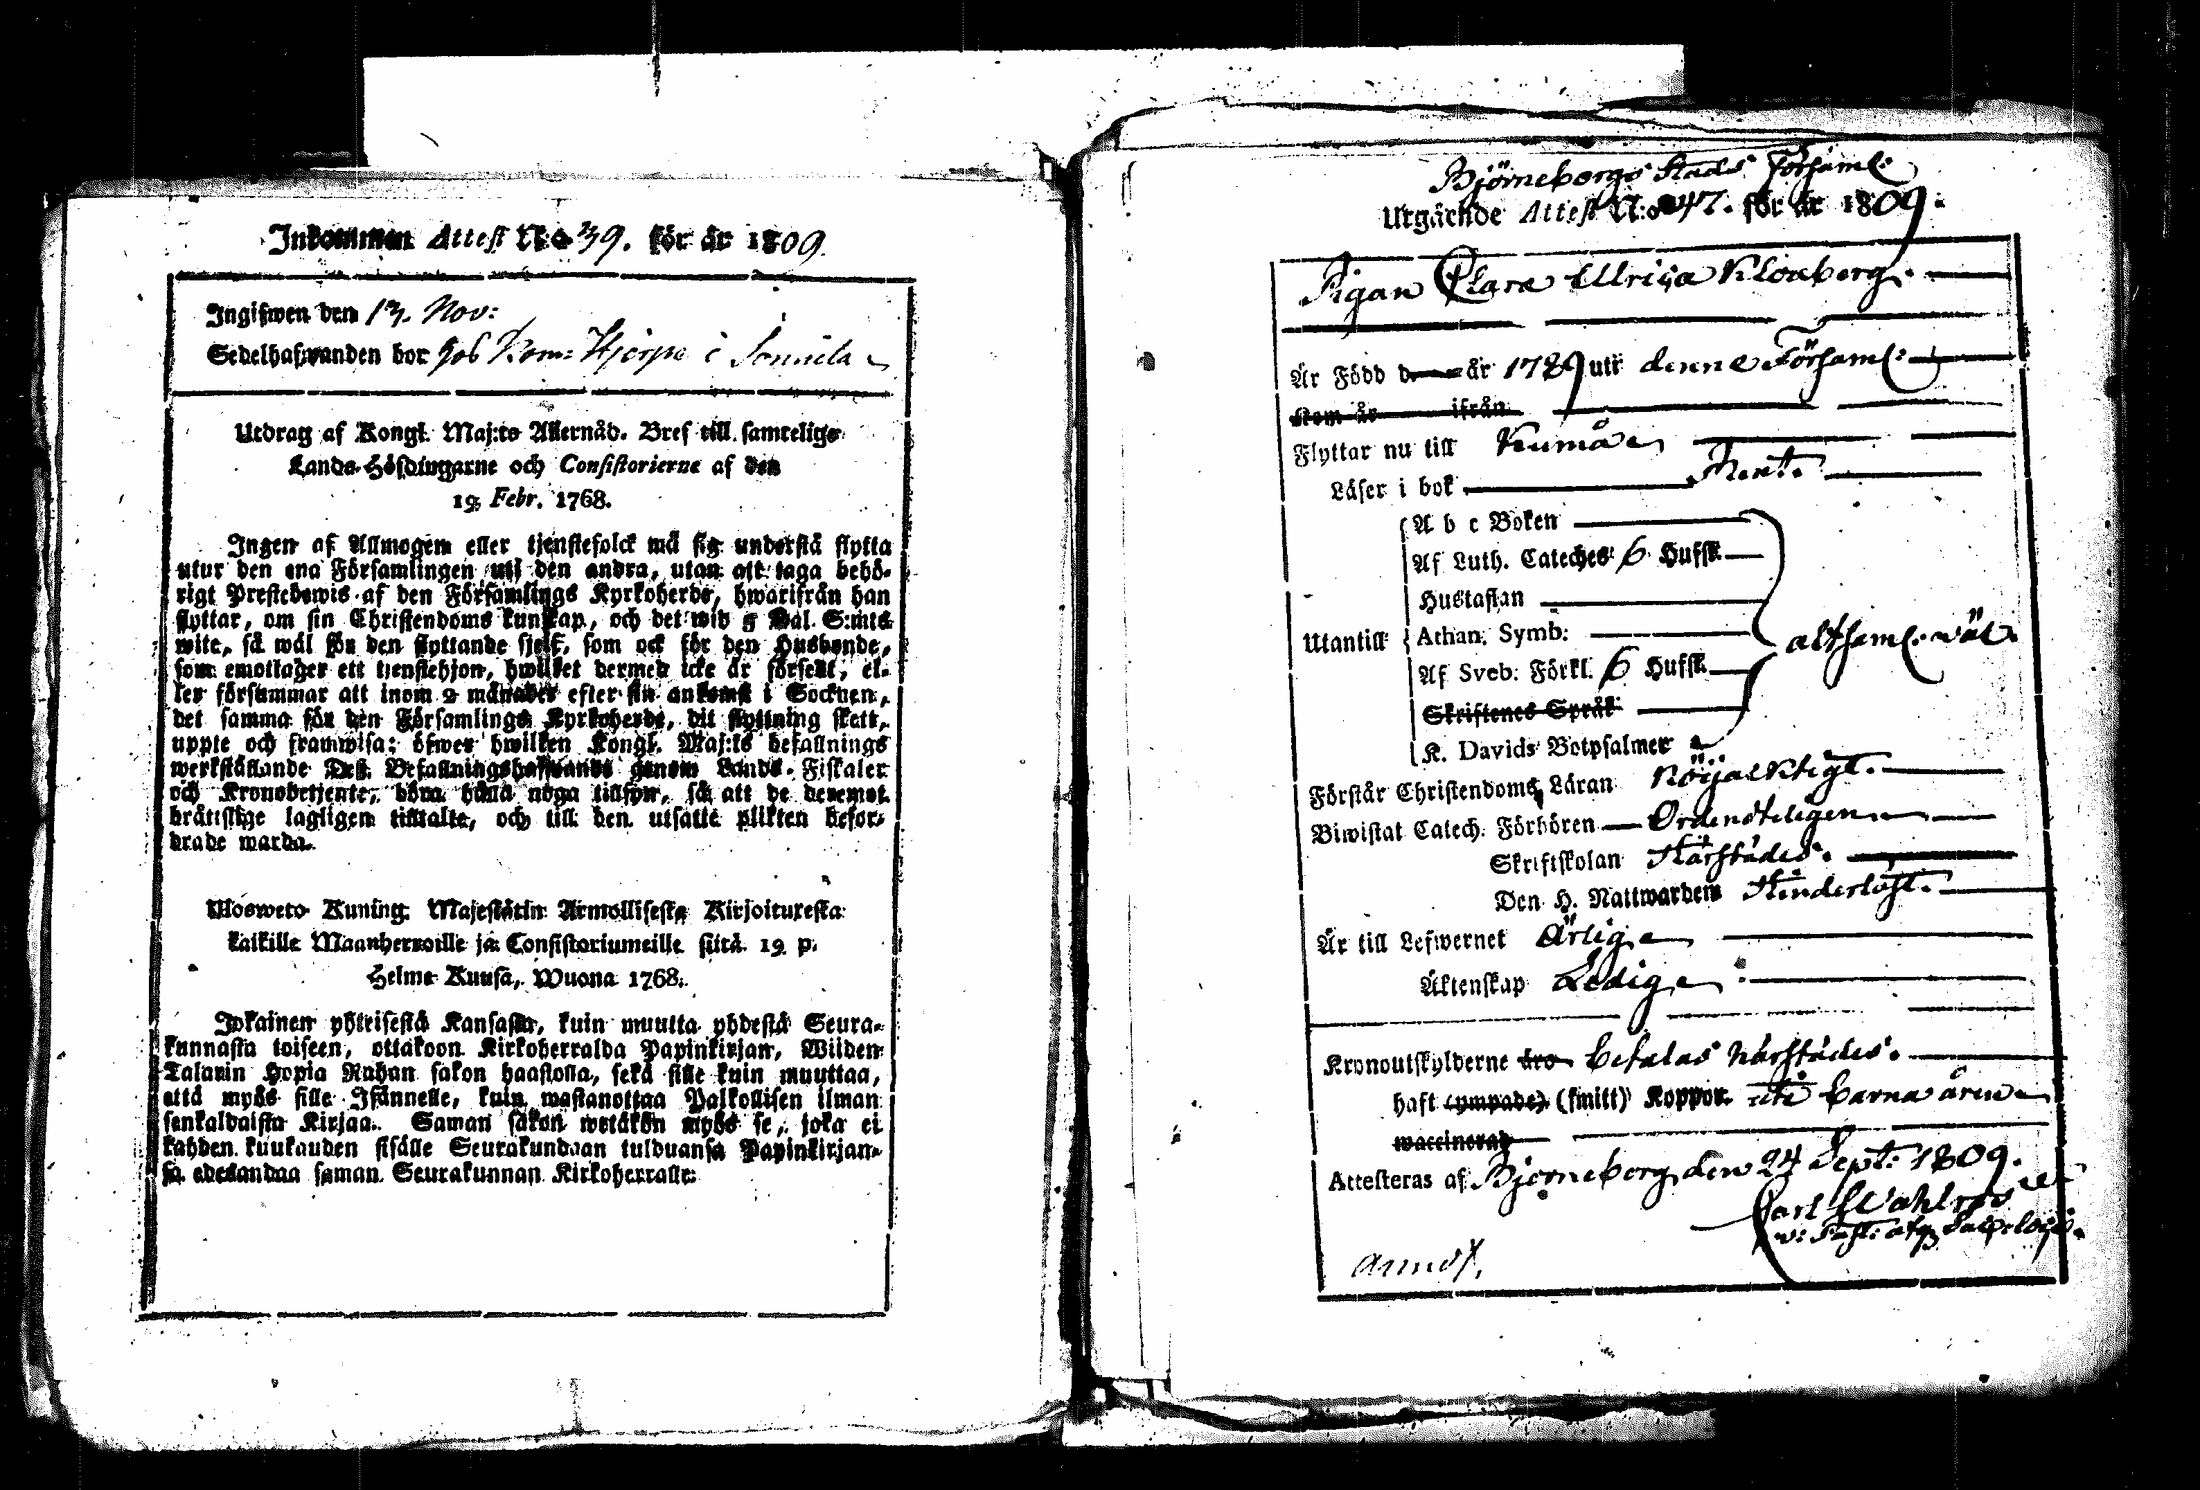 Inkommen Attest N:o 39. för år 1809.
Ingifwen den 13. Nov:
Sedelhafwanden bor hos Kom: Hjerpe i Sonnila
Utdrag af Kongl. Maj:ts Allernåd. Bref till samtelige
Lands-Höfdingarne och Consistorierne af den
19 Febr. 1768.
Ingen af Allmogen eller tjenstefolck må sig understå flytta
utur den ena Församlingen uti den andra, utan att taga behö-
rigt Prestebewis af den Församlings Kyrkoherde, hwarifrån han
flyttar, om sin Christendoms kunskap, och det wid 5 Dal. S:mts
wite, så wäl för den flyttande sjelf, som ock för den Husbonde,
som emottager ett tjenstehjon, hwilket dermed icke är försedt, el-
ler försummar att inom 2 månader efter sin ankomst i Socknen,
det samma för den Församlings Kyrkoherde, dit flyttning skett,
uppte och framwisa; öfwer hwilken Kongl. Maj:ts befallnings
werkställande Dess Befallningshafwande genom Lands-Fiskaler
och Kronobetjente, böra hålla noga tillsyn, så att de deremot
brätslige lagligen tilltalte, och till den utsatte plikten befor-
drade warda.
Ulosweto Kuning. Majestätin Armollisesta Kirjoituxesta
kaikille Maanherroille ja Consistoriumeille siitä 19 p.
Helme Kuusa, Wuona 1768.
Jokainen yhteisestä Kansasta, kuin muutta yhdestä Seura-
kunnasta toiseen, ottakoon Kirkoherralda Papinkirjan, Wiiden
Talarin Hopia Rahan sakon haastolla, sekä sille kuin muuttaa,
että myös sille Isännelle, kuin wastanottaa Palkollisen ilman
senkaldaista Kirjaa. Saman sakon wetäkön myös se, joka ei
kahden kuukauden sisälle Seurakundaan tulduansa Papinkirjan-
sa edesandaa saman Seurakunnan Kirkoherralle.
Björneborgs Stads Församl:
Utgående Attest N:o 47. för år 1809.
Pigan Clara Ulrica Kloxberg.
Är Född d. år 1789 uti denna Församl:
Kom år ifrån
Flyttar nu till Kumå
Läser i bok Rent.
A b c Boken
Af Luth. Cateches 6 Hufst.
Hustaflan
Utantill Athan. Symb: altsaml. wäl.
Af Sveb. Förkl. 6 Hufst.
Skriftenes Språk
K. Davids Botpsalmer
Förstår Christendoms Läran Nöjaktigt.
Biwistat Catech. Förhören Ordenteligen
Skriftskolan Härstädes.
Den H. Nattwarden Hinderlöst.
Är till Lefwernet Ärlig
Äktenskap Ledig
Kronoutskylderne äro betalas härstädes.
haft (ympade) (smitt) Koppor uti barna åren
waccinerad
Attesteras af Björneborg den 24 Sept: 1809.
Carl Wahlroos
annot.